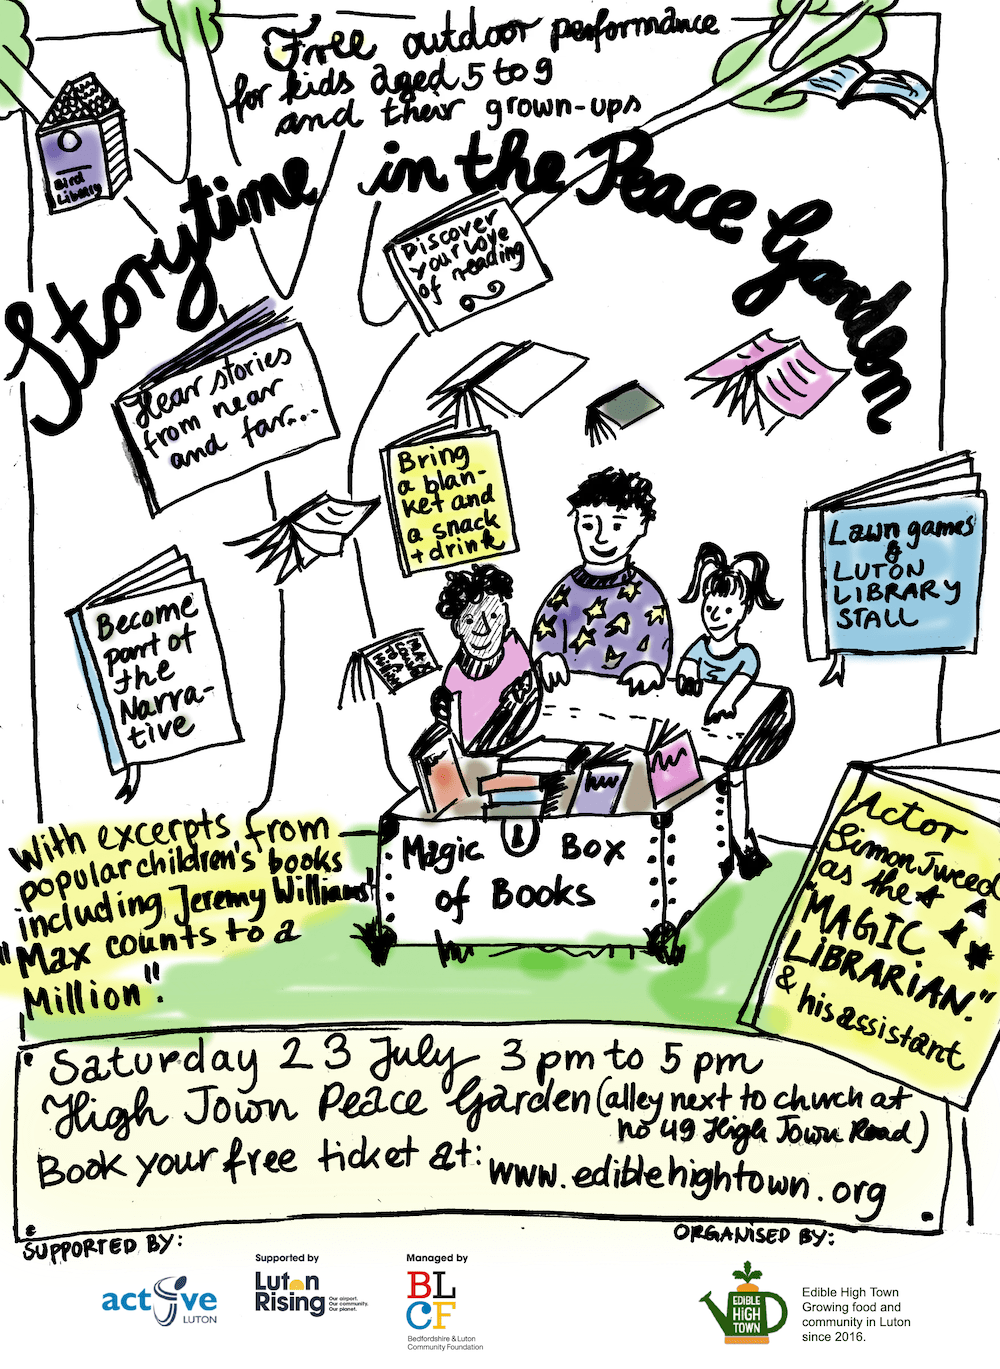 Free outdoor performance
for kids aged 5 to 9
and their grown-ups
Bird
Library
Storytime in the Peace Garden
Discover
your love
of reading
Hear stories
from near
and far...
Bring
a blan-
ket and
a snack
+ drink
Lawn games
&
LUTON
LIBRARY
STALL
Become
part of
the
Narra-
tive
With excerpts from
popular children's books
including Jeremy Williams'
"Max counts to a
Million".
Magic Box
of Books
Actor
Simon Tweed
as the
"MAGIC
LIBRARIAN."
& his assistant
Saturday 23 July 3 pm to 5 pm
High Town Peace Garden (alley next to church at
no 49 High Town Road)
Book your free ticket at: www.ediblehightown.org
SUPPORTED BY:
ORGANISED BY:
active
LUTON
Supported by
Luton
Rising
Our airport.
Our community.
Our planet.
Managed by
BL
CF
Bedfordshire & Luton
Community Foundation
EDIBLE
HIGH
TOWN
Edible High Town
Growing food and
community in Luton
since 2016.